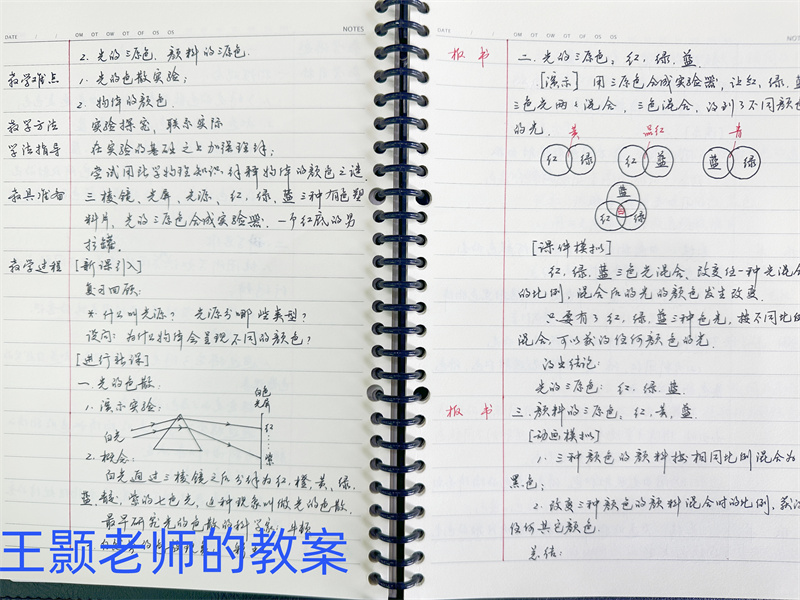 DATE / / OM OT OW OT OF OS OS NOTES
2. 光的三原色. 颜料的三原色.
教学难点 1. 光的色散实验;
2. 物体的颜色.
教学方法 实验探究, 联系实际
学法指导 在实验的基础之上加强理解;
尝试用此学物理知识解释物体的颜色之谜.
教具准备 三棱镜、光屏、光源、红、绿、蓝三种有色塑
料片、光的三原色合成实验器. 一个红底的易
拉罐.
教学过程 [新课引入]
复习回顾:
* 什么叫光源? 光源分哪些类型?
设问: 为什么物体会呈现不同的颜色?
[进行新课]
一. 光的色散:
1. 演示实验:
白色
光屏
白光
红
紫
2. 概念:
白光通过三棱镜之后分解为红, 橙, 黄, 绿,
蓝, 靛, 紫的七色光, 这种现象叫做光的色散.
最早研究光的色散的科学家: 牛顿
王颢老师的教案
DATE / / OM OT OW OT OF OS OS NO
板书 二. 光的三原色: 红, 绿, 蓝.
[演示] 用三原色合成实验器, 让红、绿、蓝
三色光两两混合, 三色混合, 得到了不同颜色
的光.
黄 品红 青
红 绿 红 蓝 蓝 绿
蓝
红 绿
[课件模拟]
红、绿、蓝三色光混合, 改变任一种光混合
的比例, 混合后的光的颜色发生改变.
只要有了红、绿、蓝三种色光, 按不同比例
混合, 可以获得任何颜色的光.
得出结论:
光的三原色: 红, 绿, 蓝.
板书 三. 颜料的三原色: 红, 黄, 蓝.
[动画模拟]
1. 三种颜色的颜料按相同比例混合为
黑色;
2. 改变三种颜色的颜料混合时的比例, 获得
任何其它颜色.
总结: